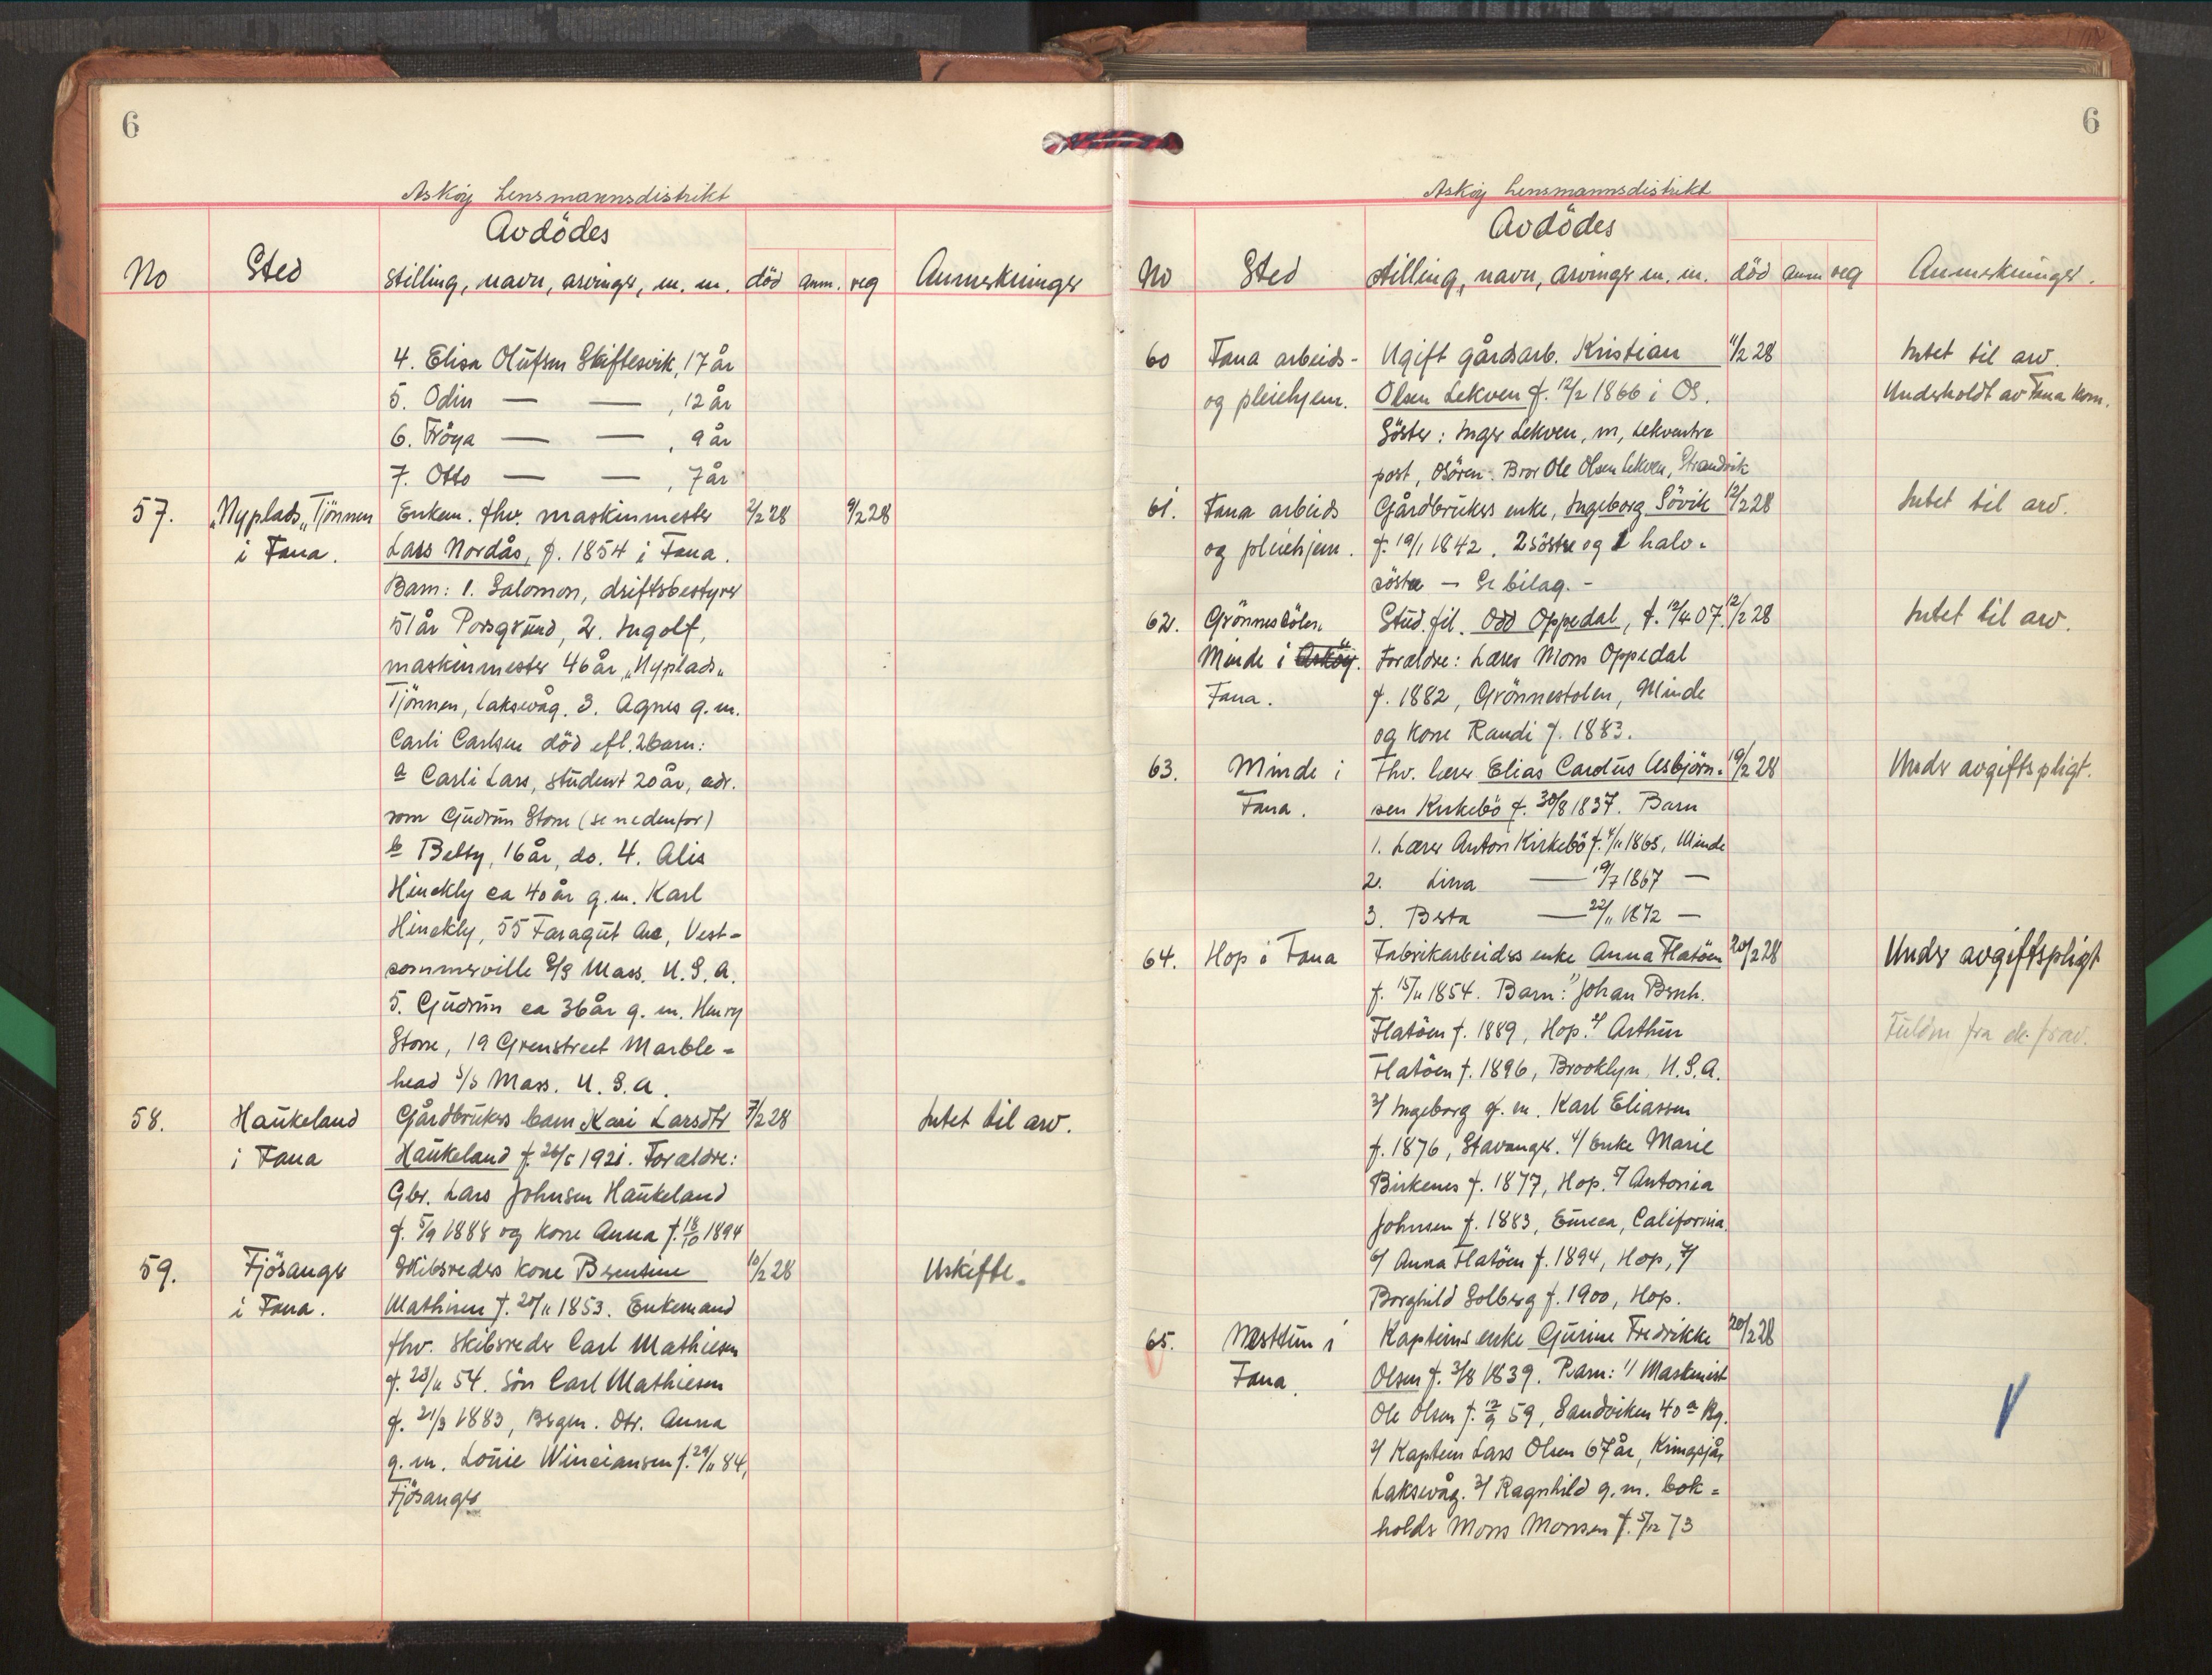 6
Askøy Lensmannsdistrikt
Avdödes
No Sted stilling, navn, arvinger, m. m. död anm. reg Anmerkninger
4. Elisa Olufsen Skiftesvik, 17 år
5. Odin — — , 12 år
6. Fröya — — , 9 år
7. Otto — — , 7 år
57. "Nyplads" Tjönnen Enkem. fhv. maskinmester 2/2 28 9/2 28
i Fana. Lars Nordås, f. 1854 i Fana.
Barn: 1. Salomon, driftsbestyrer
51 år Porsgrund, 2. Ingolf,
maskinmester 46 år, "Nyplads"
Tjönnen, Laksevåg. 3. Agnes g. m.
Carli Carlsen död efl. 2 barn:
a Carli Lars, student 20 år, adr.
som Gudrun Stone (se nedenfor)
b Betty, 16 år, do. 4. Alis
Hinckly ca 40 år g. m. Karl
Hinckly, 55 Faragut Ave, Vest-
sommerville Mass. U. S. A.
5. Gudrun ca 36 år g. m. Henry
Stone, 19 Grenstreet Marble-
head Mass. U. S. A.
58. Haukeland Gårdbrukers barn Kari Larsdtr 7/2 28 Intet til arv.
i Fana Haukeland f. 26/5 1921. Forældre:
Gbr. Lars Johnsen Haukeland
f. 5/9 1888 og kone Anna f. 18/10 1894
59. Fjösanger Skibsreders kone Berentine 10/2 28 Uskifte.
i Fana. Mathisen f. 20/11 1853. Enkemand
fhv. skibsreder Carl Mathiesen
f. 23/11 54. Sön Carl Mathiesen
f. 21/3 1883, Bergen. Dtr. Anna
g. m. Louie Winciansen f. 29/11 84,
Fjösanger
6
Askøy Lensmannsdistrikt
Avdödes
No Sted stilling, navn, arvinger m. m. död anm reg Anmerkninger.
60 Fana arbeids- Ugift gårdsarb. Kristian 11/2 28 Intet til arv.
og pleiehjem. Olsen Lekven f. 12/2 1866 i Os. Underholdt av Fana kom.
Söster: Inger Lekven, m, Lekventre
post, Osören. Bror Ole Olsen Lekven, Strandvik
61. Fana arbeids Gårdbrukers enke, Ingeborg Sövik 12/2 28 Intet til arv.
og pleiehjem. f. 19/1 1842. 2 söstre og 1 halv-
söster — Se bilag. -
62. Grönnestölen Stud. fil. Odd Oppedal, f. 12/4 07. 12/2 28 Intet til arv.
Minde i Askøy. Forældre: Lærer Mons Oppedal
Fana. f. 1882, Grönnestolen, Minde
og kone Randi f. 1883.
63. Minde i Fhv. lærer Elias Cardtus Asbjörn- 19/2 28 Under avgiftspligt.
Fana. sen Kirkebö f. 30/8 1837. Barn
1. Lærer Anton Kirkebö f. 4/11 1865, Minde
2. Lina — 19/7 1867 —
3. Berta — 22/11 1872 —
64. Hop i Fana Fabrikarbeiders enke Anna Flatöen 20/2 28 Under avgiftspligt
f. 15/11 1854. Barn: 1/ Johan Bernh.
Flatöen f. 1889, Hop. 2/ Arthur
Flatöen f. 1896, Brooklyn, U. S. A.
3/ Ingeborg g. m. Karl Eliassen
f. 1876, Stavanger. 4/ Enke Marie
Birkenes f. 1877, Hop. 5/ Antonia
Johnsen f. 1883, Eureca, California.
6/ Anna Flatöen f. 1894, Hop, 7/
Borghild Solberg f. 1900, Hop.
65. Nesttun i Kapteins enke Gurine Fredrikke 20/2 28
Fana. Olsen f. 3/8 1839. Barn: 1/ Maskinist
Ole Olsen f. 12/9 59, Sandviken 40 a Bg.
2/ Kaptein Lars Olsen 67 år, Kringsjå,
Laksevåg. 3/ Ragnhild g. m. bok-
holder Mons Monsen f. 5/12 73